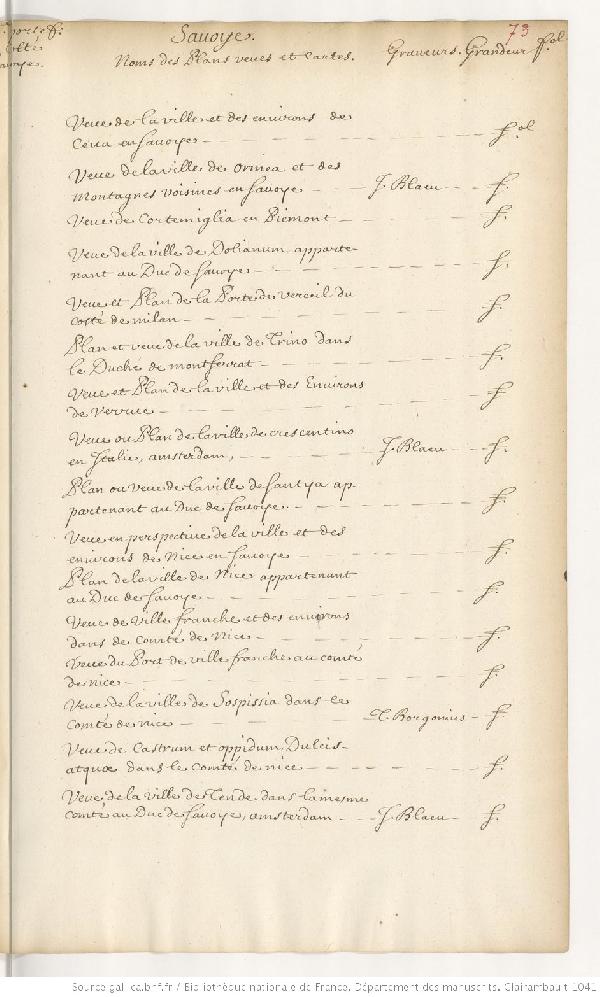 portef:
cotté
Savoye.
73
Savoye.
Noms des Plans veues et Cartes. Graveurs. Grandeur fol
Veue de la ville et des environs de
Ceva en Savoye f.ol
Veue de la ville de Ormea et des
Montagnes voisines en Savoye J. Blaeu f.
Veue de Cortemiglia en Piemont f.
Veue de la ville de Dolianum apparte-
nant au Duc de Savoye f.
Veue et Plan de la Porte du Verceil du
costé de milan f.
Plan et veue de la ville de Trino dans
le Duché de montferrat f.
Veue et Plan de la ville et des Environs
de Verrue f
Veue ou Plan de la ville de crescentino
en Italie, amsterdam, J. Blaeu f.
Plan ou veue de la ville de Santya ap-
partenant au Duc de Savoye f.
Veue en perspective de la ville et des
environs de Nice en Savoye f.
Plan de la ville de Nice appartenant
au Duc de Savoye f.
Veue de Ville franche et des environs
dans de Comté de Nice f.
Veue du Port de ville franche au comté
de nice f.
Veue de la ville de Sospissia dans le
Comté de nice Borgonius f
Veue de Castrum et oppidum Dulcis-
atquæ dans le Comté de nice f.
Veue de la ville de Tende dans la mesme
comté au Duc de Savoye, amsterdam J. Blaeu f.
Source gallica.bnf.fr / Bibliothèque nationale de France. Département des manuscrits. Clairambault 1041